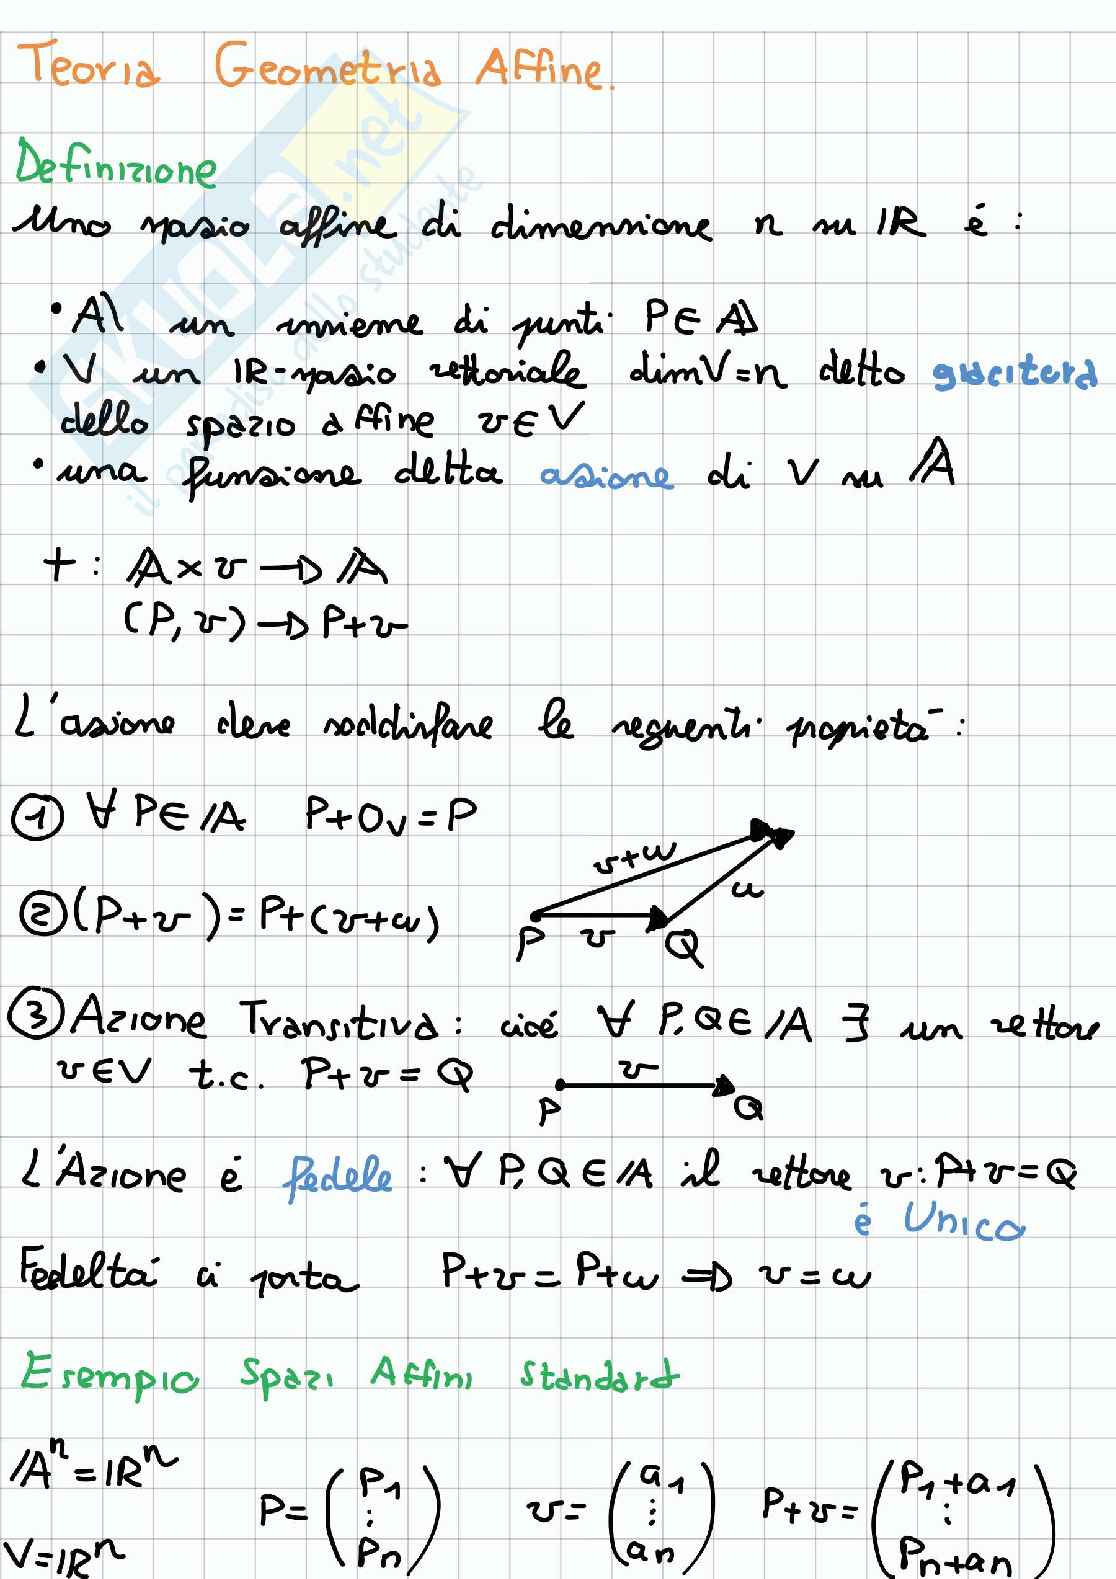 Teoria Geometria Affine.
Definizione
Uno spazio affine di dimensione n su IR é :
• A un insieme di punti P ∈ A
• V un IR-spazio vettoriale dimV=n detto giacitura
dello spazio affine v∈V
• una funzione detta azione di V su A
+ : A × v → A
(P, v) → P+v
L'azione deve soddisfare le seguenti propietà :
① ∀ P∈A P+0v = P
② (P+v) = P+(v+w)
v+w
w
P v Q
③ Azione Transitiva : cioé ∀ P,Q∈A ∃ un vettore
v∈V t.c. P+v = Q
v
P Q
L'Azione é fedele : ∀ P,Q ∈ A il vettore v : P+v = Q
é Unico
Fedeltá ci porta P+v = P+w ⇒ v = w
Esempio Spazi Affini standard
Aⁿ = IRⁿ
V = IRⁿ
P = (P1 ⋮ Pn) v = (a1 ⋮ an) P+v = (P1+a1 ⋮ Pn+an)
SKUOLA.net
il paradiso dello studente